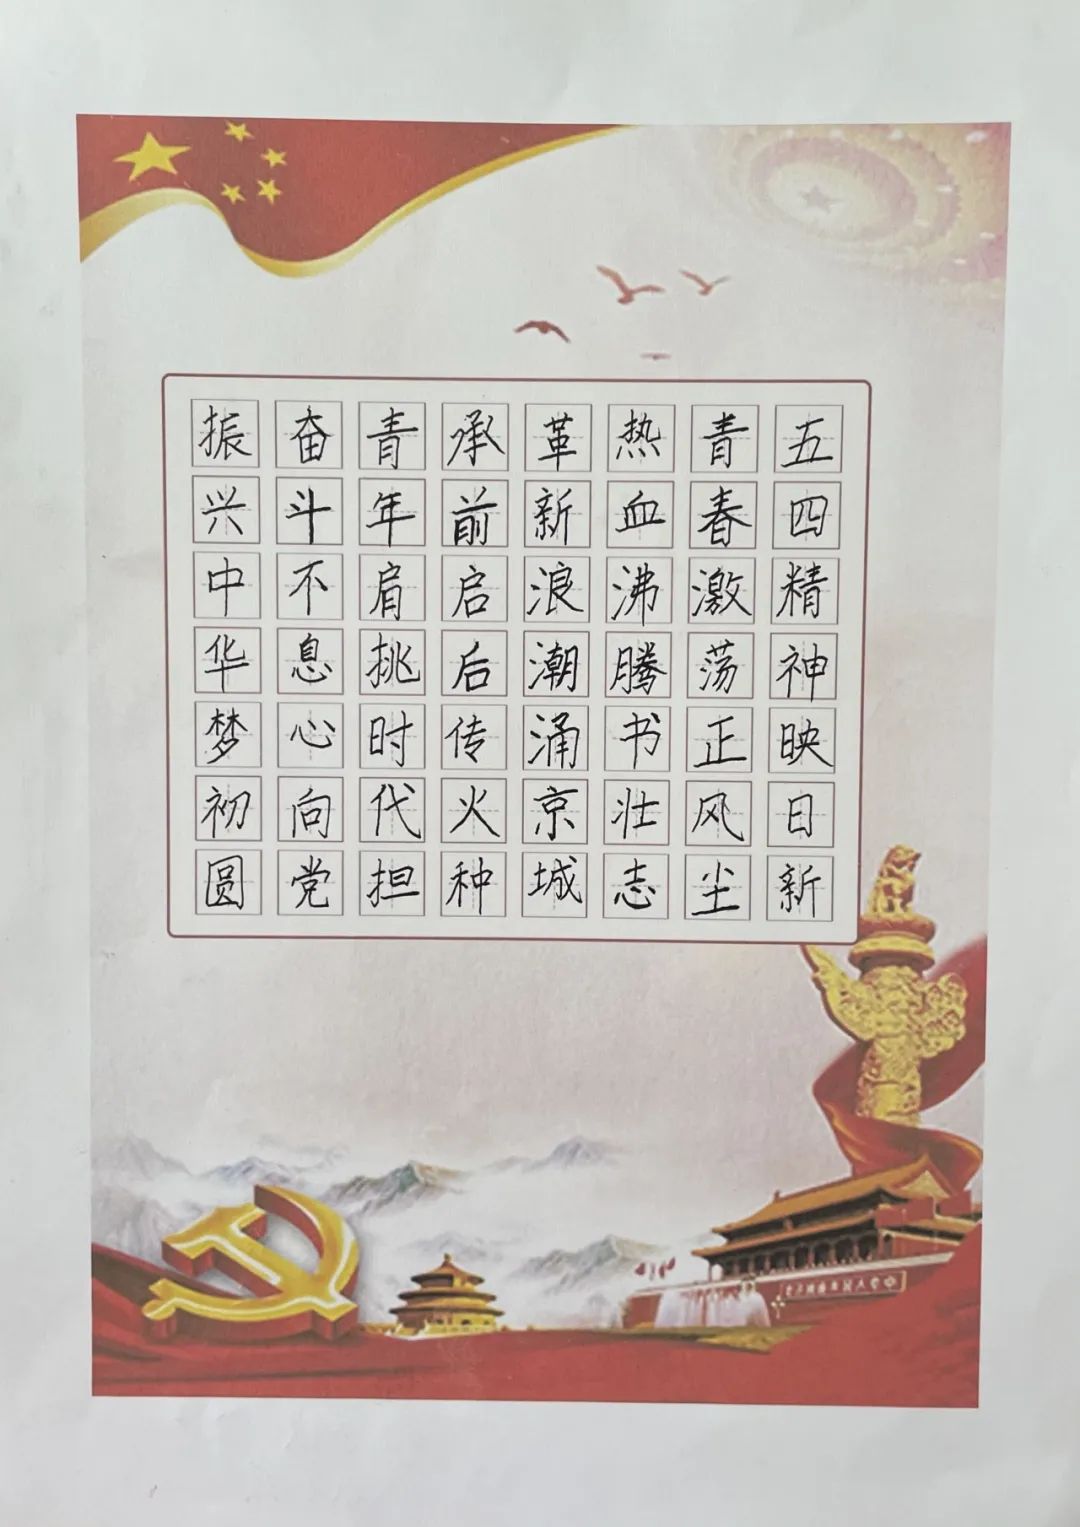 五四精神映日新
青春激荡正风尘
热血沸腾书壮志
革新浪潮涌京城
承前启后传火种
青年肩挑时代担
奋斗不息心向党
振兴中华梦初圆